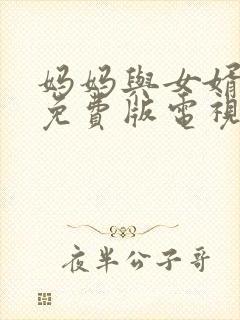 妈妈與女婿
免費版電視
夜半公子哥